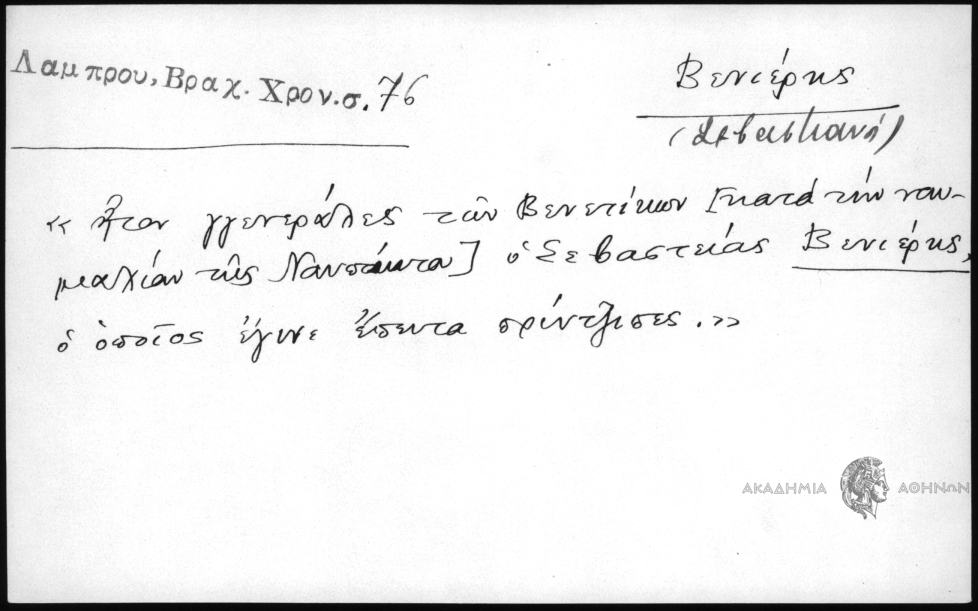 Λαμπρου, Βραχ. Χρον. σ. 76
Βενιέρης
(Σεβαστιανή)
« ἦτον γγενεράλες τῶν Βενετίκων [κατά τήν ναυ-
μαχίαν τῆς Ναυπάκτου] ὁ Σεβαστείας Βενιέρης,
ὁ ὁποῖος ἔγινε ἔπειτα πρίντζιπες.»
ΑΚΑΔΗΜΙΑ ΑΘΗΝΩΝ